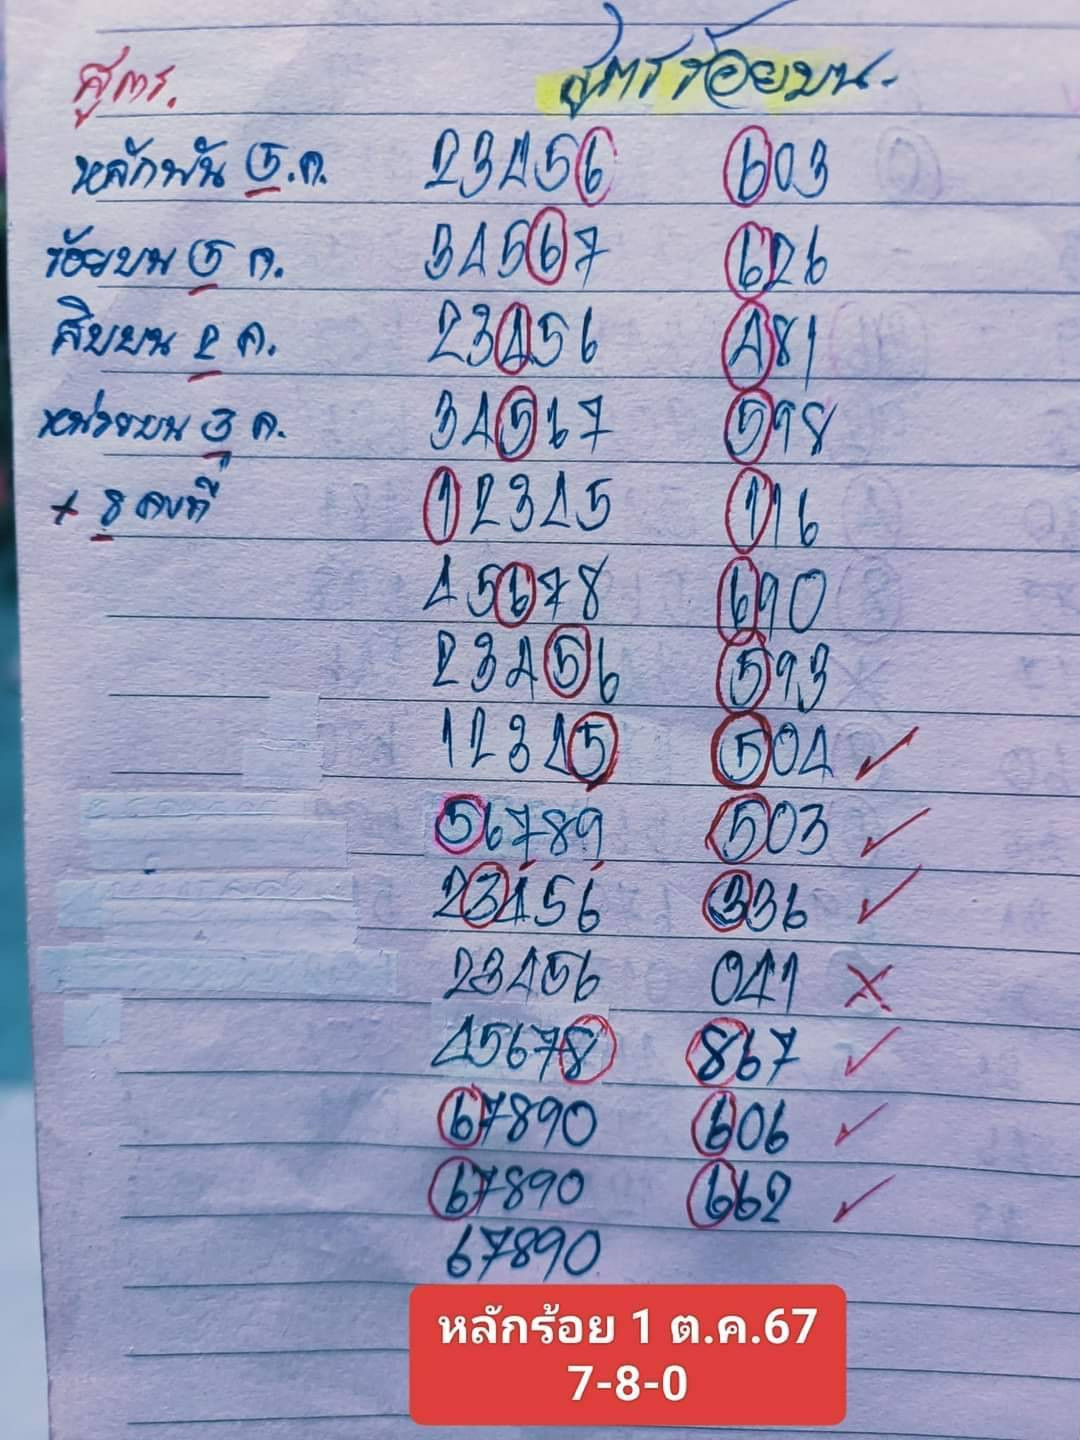 สูตร. สูตรร้อยบน.
หลักพัน 5.ค. 23456 603
ร้อยบน 5 ค. 34567 626
สิบบน 2 ค. 23456 481
หน่วยบน 3 ค. 34567 598
+ 8 คงที่ 12345 116
45678 690
23456 593
12345 504 ✓
56789 503 ✓
23456 336 ✓
23456 041 ✗
45678 867 ✓
67890 606 ✓
67890 662 ✓
67890
หลักร้อย 1 ต.ค.67
7-8-0